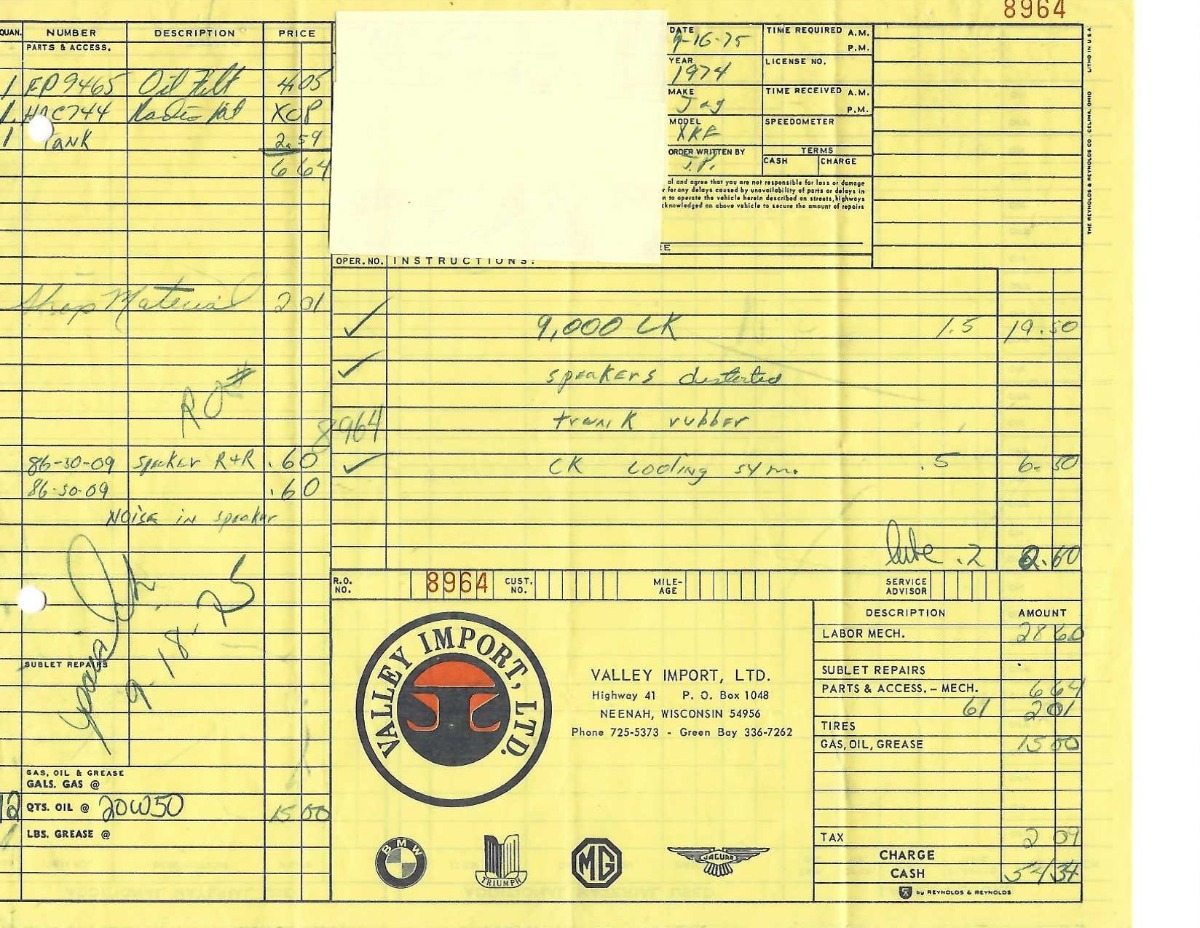 8964
QUAN. NUMBER DESCRIPTION PRICE
PARTS & ACCESS.
1 FP9465 Oil Filt 4 05
1 HAC744 XOP
1 TANK 2.59
6 64
Shop Material 2 01
RO#
8964
86-30-09 speaker R+R .60
86-30-09 .60
NOISE in speaker
9-18-75
SUBLET REPAIRS
GAS, OIL & GREASE
GALS. GAS @
12 QTS. OIL @ 20W50 15 00
LBS. GREASE @
DATE 9-16-75
YEAR 1974
MAKE Jag
MODEL XKE
ORDER WRITTEN BY J.P.
TIME REQUIRED A.M.
P.M.
LICENSE NO.
TIME RECEIVED A.M.
P.M.
SPEEDOMETER
TERMS
CASH CHARGE
al and agree that you are not responsible for loss or damage
r for any delays caused by unavailability of parts or delays in
n to operate the vehicle herein described on streets, highways
cknowledged on above vehicle to secure the amount of repairs
THE REYNOLDS & REYNOLDS CO., CELINA, OHIO LITHO IN U.S.A.
OPER. NO. INSTRUCTIONS:
✓ 9,000 CK 1.5 19.50
✓ speakers distorted
trunk rubber
✓ CK cooling sym. .5 6.50
lube .2 2.60
R.O. NO. 8964 CUST. NO. MILE-AGE SERVICE ADVISOR
VALLEY IMPORT, LTD.
VALLEY IMPORT, LTD.
Highway 41 P. O. Box 1048
NEENAH, WISCONSIN 54956
Phone 725-5373 - Green Bay 336-7262
BMW
TRIUMPH
MG
JAGUAR
DESCRIPTION AMOUNT
LABOR MECH. 28 60
SUBLET REPAIRS
PARTS & ACCESS. – MECH. 6 64
61 2 01
TIRES
GAS, OIL, GREASE 15 00
TAX 2 09
CHARGE
CASH 54 34
by REYNOLDS & REYNOLDS